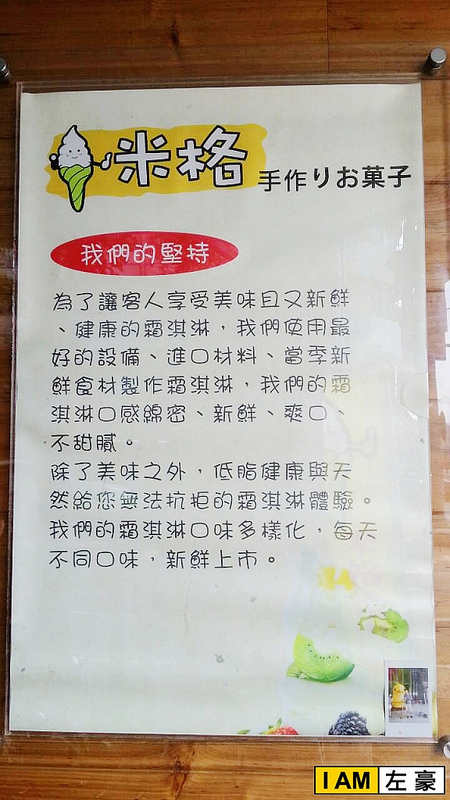 米格 手作りお菓子
我們的堅持
為了讓客人享受美味且又新鮮
、健康的霜淇淋，我們使用最
好的設備、進口材料、當季新
鮮食材製作霜淇淋，我們的霜
淇淋口感綿密、新鮮、爽口、
不甜膩。
除了美味之外，低脂健康與天
然給您無法抗拒的霜淇淋體驗。
我們的霜淇淋口味多樣化，每天
不同口味，新鮮上市。
I AM 左豪